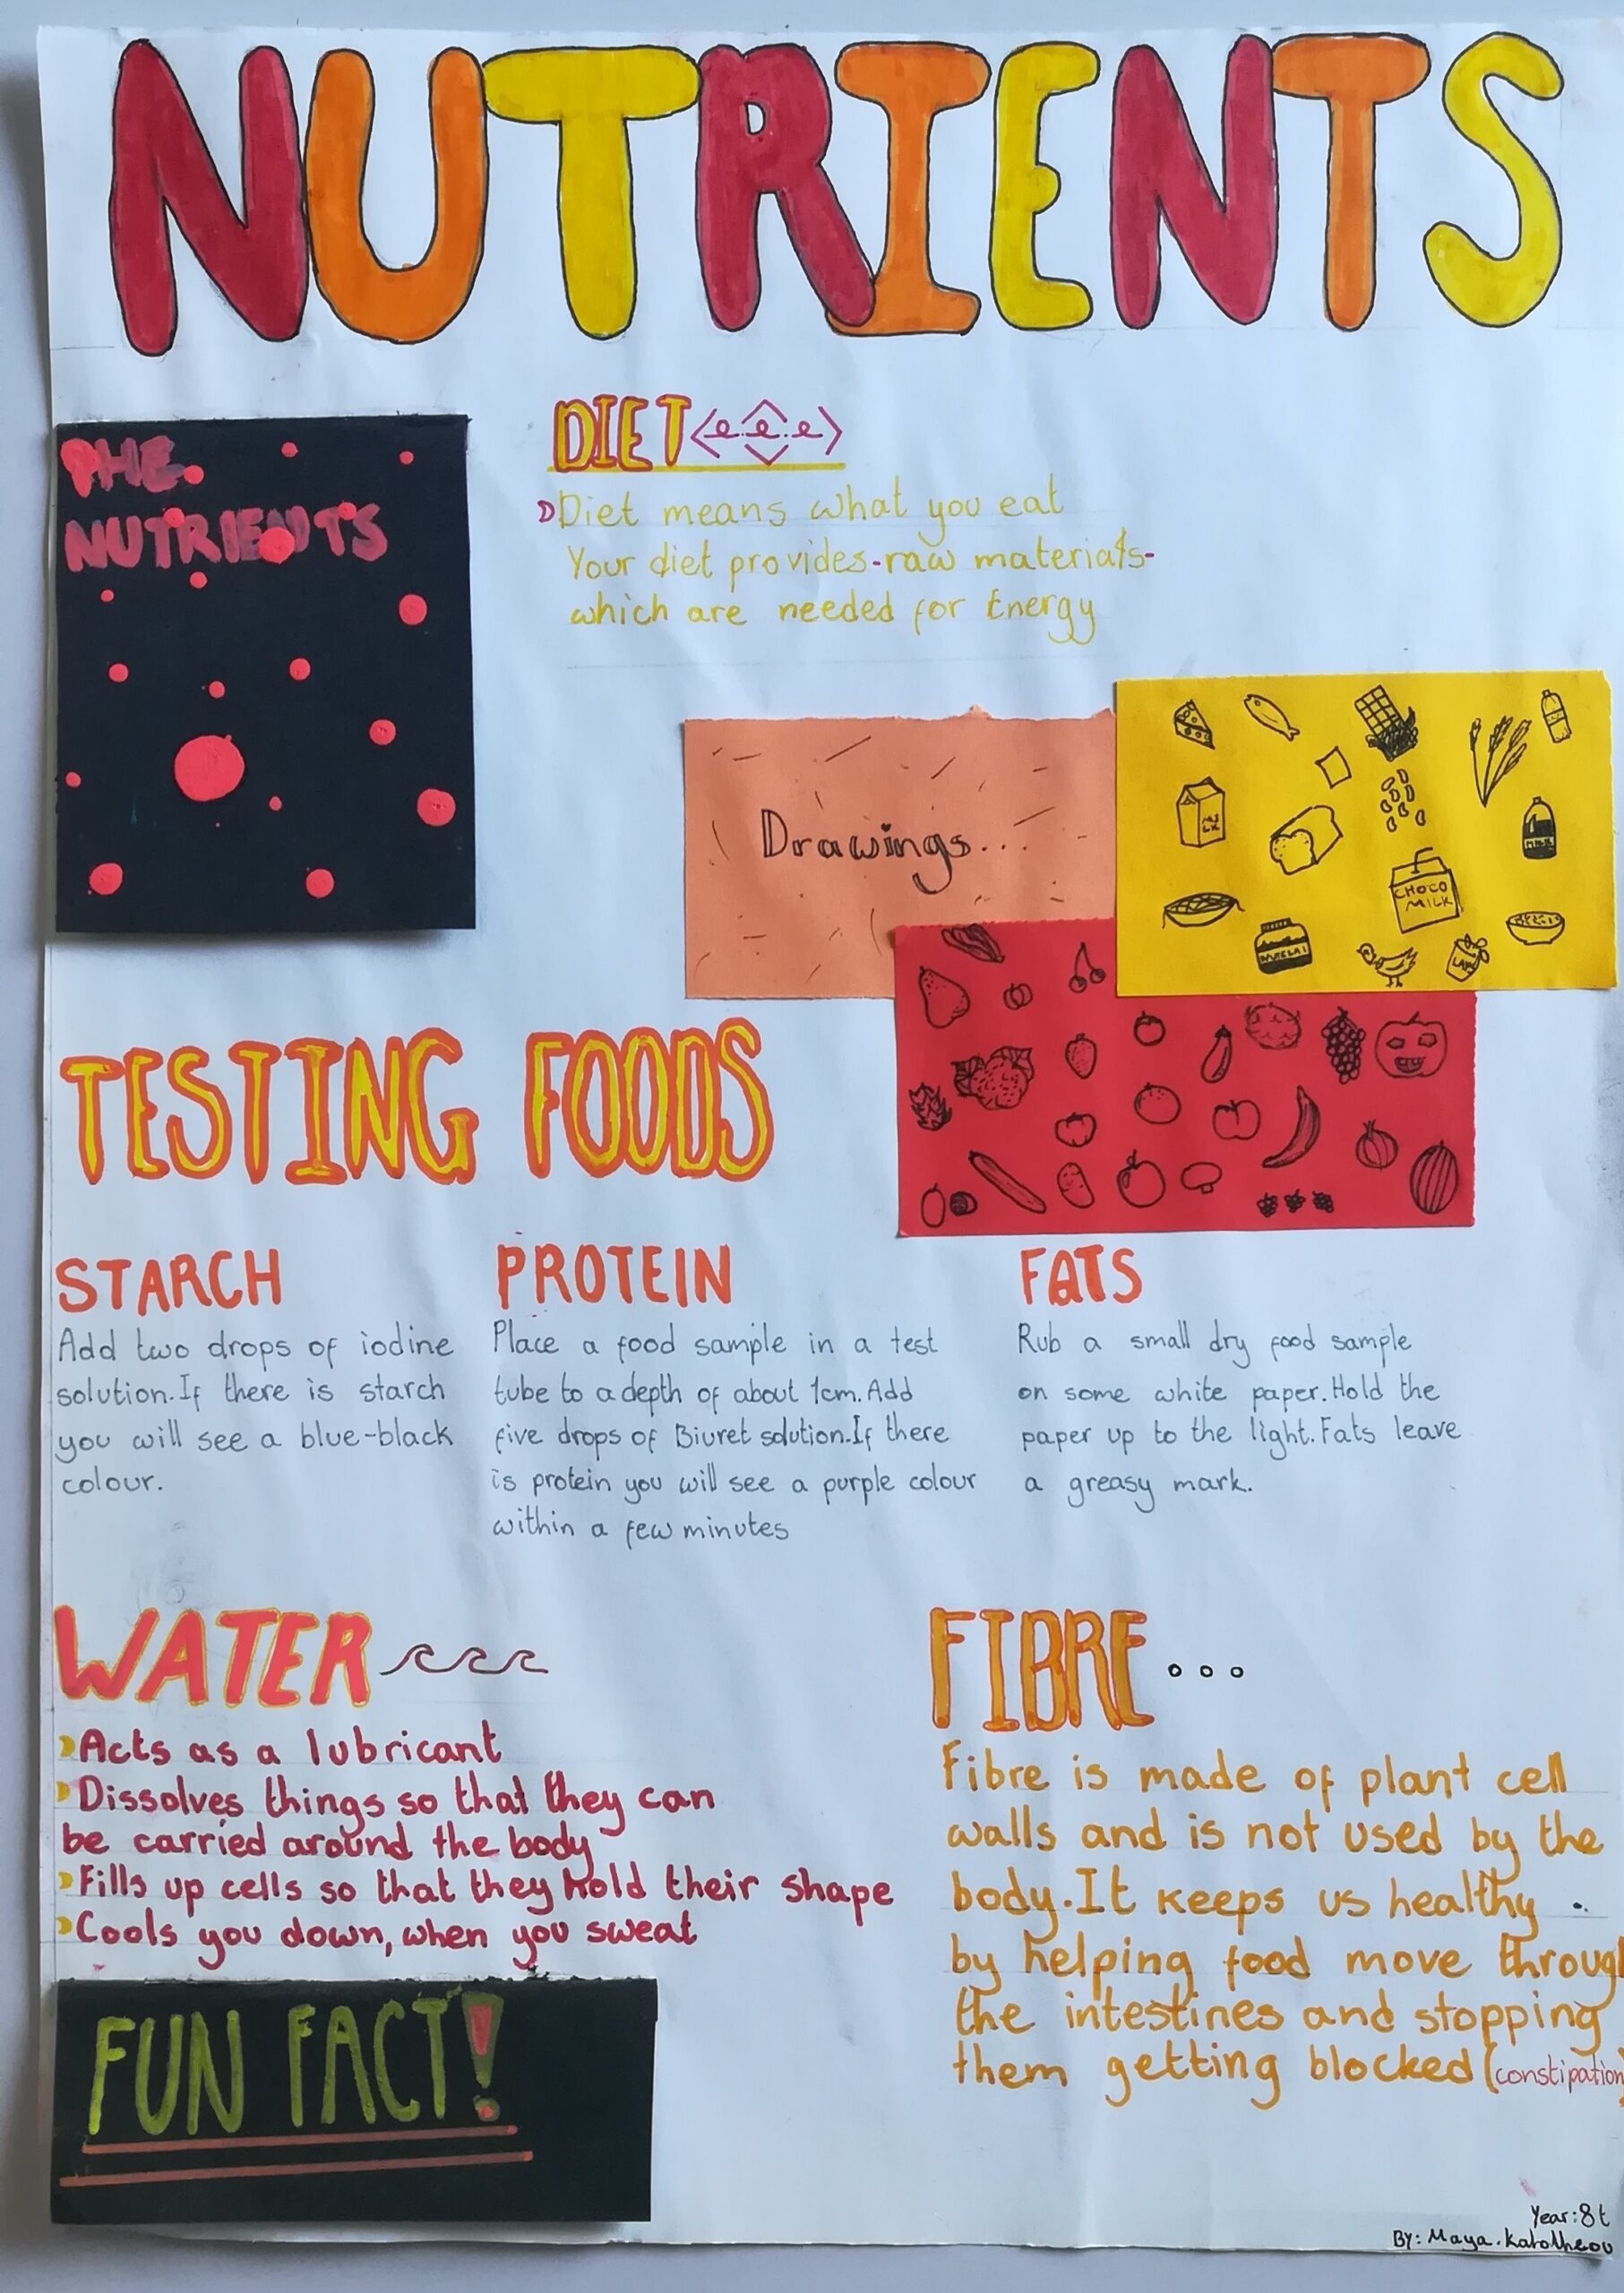 NUTRIENTS
THE
NUTRIENTS
DIET
Diet means what you eat
Your diet provides-raw materials-
which are needed for Energy
Drawings...
MILK
MILK
CHOCO
MILK
TESTING FOODS
STARCH
Add two drops of iodine
solution.If there is starch
you will see a blue-black
colour.
PROTEIN
Place a food sample in a test
tube to a depth of about 1cm.Add
five drops of Biuret solution.If there
is protein you will see a purple colour
within a few minutes
FATS
Rub a small dry food sample
on some white paper.Hold the
paper up to the light.Fats leave
a greasy mark.
WATER
Acts as a lubricant
Dissolves things so that they can
be carried around the body
Fills up cells so that they hold their shape
Cools you down, when you sweat
FIBRE...
Fibre is made of plant cell
walls and is not used by the
body.It keeps us healthy.
by helping food move through
the intestines and stopping
them getting blocked (constipation)
FUN FACT!
Year:8t
BY: Maya.